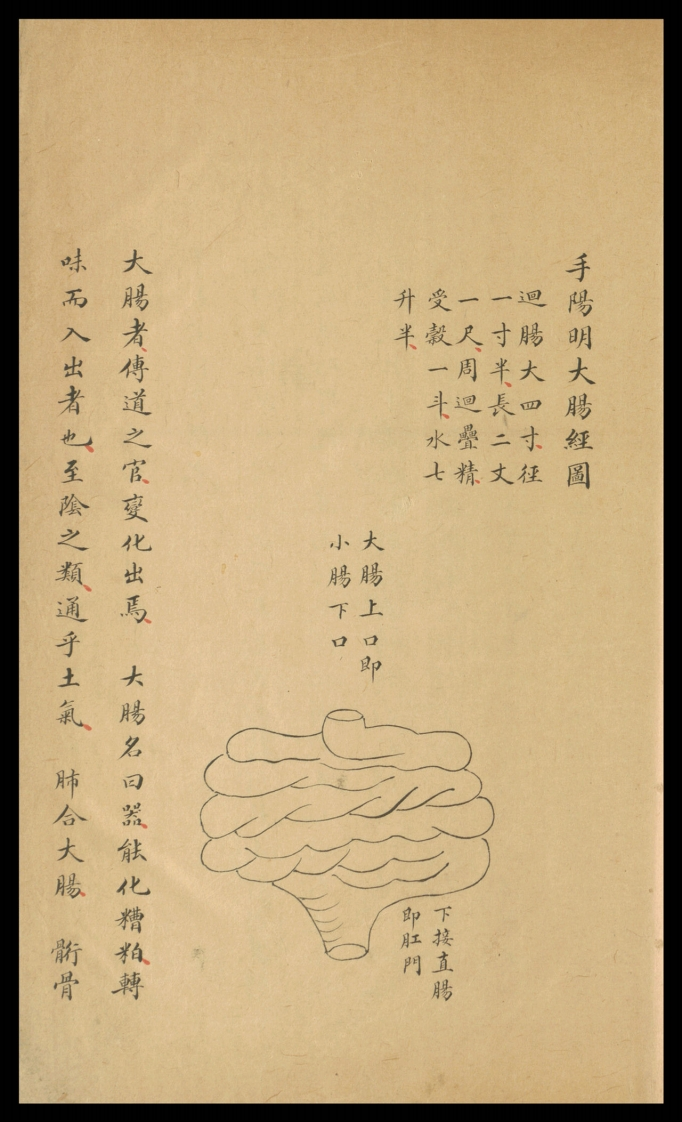 手陽明大腸經圖
迴腸大四寸徑
一寸半長二丈
一尺周迴疊精
受穀一斗水七
升半
大腸上口即
小腸下口
下接直腸
即肛門
大腸者傳道之官變化出焉　大腸名曰器能化糟粕轉
味而入出者也至陰之類通乎土氣　肺合大腸　䯒骨